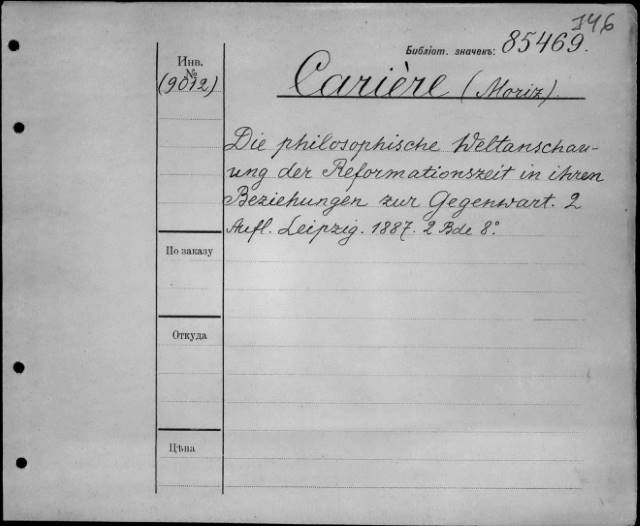 746
Библіот. значекъ: 85469.
Инв.
№
(9012)
Carière (Moriz).
Die philosophische Weltanschau-
ung der Reformationszeit in ihren
Beziehungen zur Gegenwart. 2
Aufl. Leipzig. 1887. 2 Bde 8°.
По заказу
Откуда
Цѣна